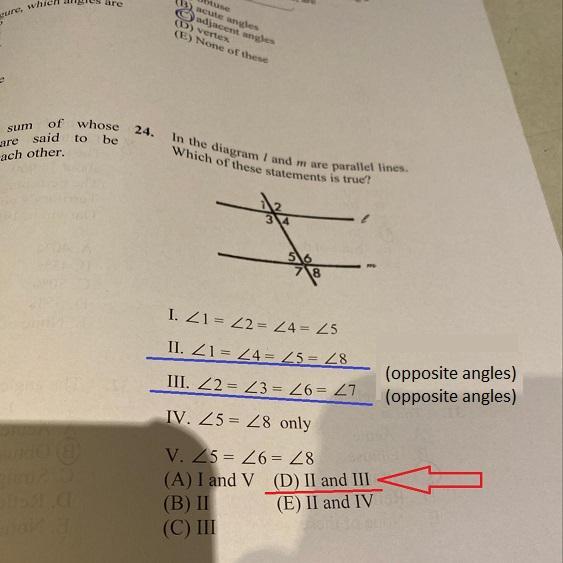 gure, which angles are
(B) acute angles
(C) adjacent angles
(D) vertex
(E) None of these
sum of whose
are said to be
ach other.
24. In the diagram l and m are parallel lines.
Which of these statements is true?
1 2
3 4
l
5 6
7 8
m
I. ∠1 = ∠2 = ∠4 = ∠5
II. ∠1 = ∠4 = ∠5 = ∠8
(opposite angles)
III. ∠2 = ∠3 = ∠6 = ∠7
(opposite angles)
IV. ∠5 = ∠8 only
V. ∠5 = ∠6 = ∠8
(A) I and V (D) II and III
(B) II (E) II and IV
(C) III